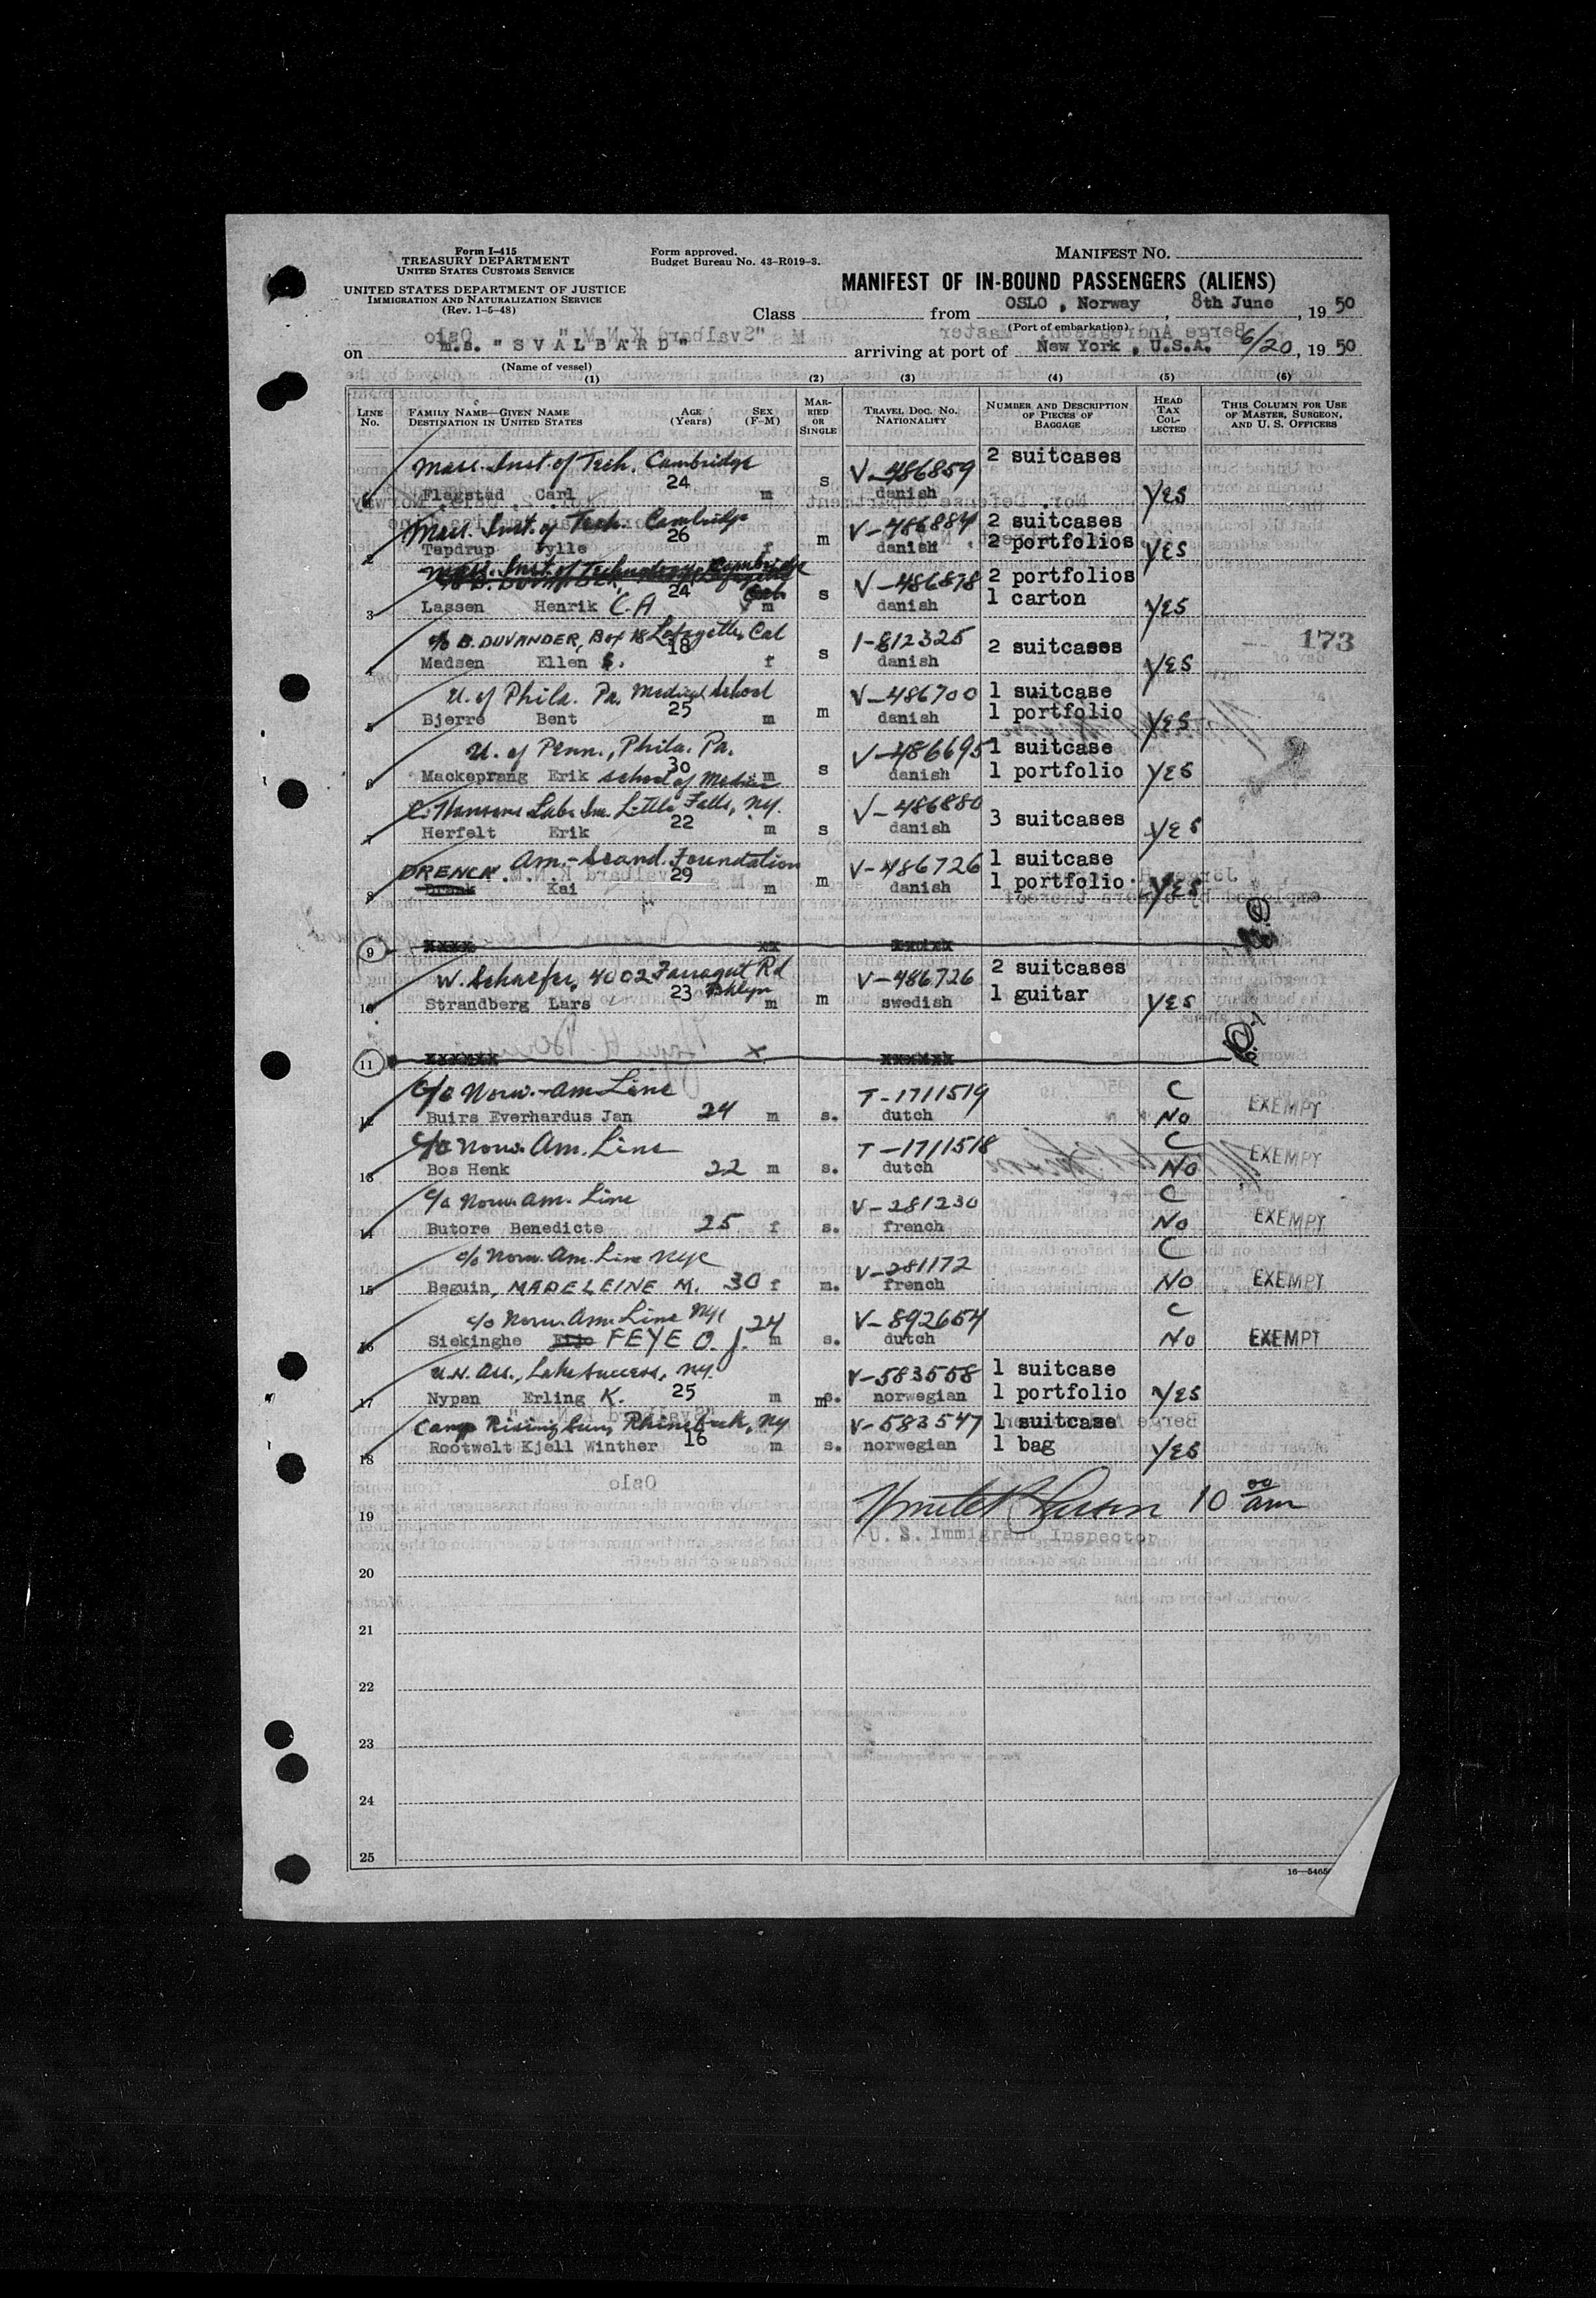 Form I-415
TREASURY DEPARTMENT
UNITED STATES CUSTOMS SERVICE
UNITED STATES DEPARTMENT OF JUSTICE
IMMIGRATION AND NATURALIZATION SERVICE
(Rev. 1-5-48)
Form approved.
Budget Bureau No. 43-R019-3.
MANIFEST NO.
MANIFEST OF IN-BOUND PASSENGERS (ALIENS)
Class from OSLO, Norway, 8th June, 1950
(Port of embarkation)
on m.s. "SVALBARD" arriving at port of New York, U.S.A. 6/20, 1950
(Name of vessel)
(1) (2) (3) (4) (5) (6)
LINE NO.
FAMILY NAME—GIVEN NAME
DESTINATION IN UNITED STATES
AGE (Years)
SEX (F-M)
MARRIED OR SINGLE
TRAVEL DOC. NO. NATIONALITY
NUMBER AND DESCRIPTION OF PIECES OF BAGGAGE
HEAD TAX COLLECTED
THIS COLUMN FOR USE OF MASTER, SURGEON, AND U. S. OFFICERS
Mass. Inst. of Tech. Cambridge V-486859 2 suitcases
Flagstad Carl 24 m s danish YES
Mass. Inst. of Tech. Cambridge V-486884 2 suitcases
2 Tapdrup Jylle 26 f m danish 2 portfolios YES
Mass. Inst. of Technology, Cambridge V-486878 2 portfolios
3 Lassen Henrik C.A 24 m s danish 1 carton YES
c/o B. DUVANDER, Box 18 Lafayette, Cal 1-812325 2 suitcases 173
Madsen Ellen S. 18 f s danish YES
U. of Phila. Pa. Medical School V-486700 1 suitcase
5 Bjerre Bent 25 m m danish 1 portfolio YES
U. of Penn., Phila. Pa. V-486695 1 suitcase
6 Mackeprang Erik School of Medicine 30 m s danish 1 portfolio YES
C. Hansens Lab. Inc. Little Falls, N.Y. V-486880 3 suitcases
7 Herfelt Erik 22 m s danish YES
DRENCK Am.-Scand. Foundation V-486726 1 suitcase
8 Kai 29 m m danish 1 portfolio YES
9 xxxx xx xxxxxx
W. Schaefer, 4002 Farragut Rd V-486726 2 suitcases
10 Strandberg Lars 23 Bklyn m m swedish 1 guitar YES
11 xxxxxx x xxxxxx
c/o Norw.-Am Line T-1711519 C
12 Buirs Everhardus Jan 24 m s. dutch No EXEMPT
c/o Norw. Am. Line T-1711518 C
13 Bos Henk 22 m s. dutch No EXEMPT
c/o Norw. Am. Line V-281230 C
14 Butore Benedicte 25 f s. french No EXEMPT
c/o Norw. Am. Line NYC V-281172 C
15 Beguin, MADELEINE M. 30 f m. french No EXEMPT
c/o Norw. Am. Line NYC V-892654 C
16 Siekinghe FEYE O. J. 24 m s. dutch No EXEMPT
U.N. Ass., Lake Success, N.Y. V-583558 1 suitcase
17 Nypan Erling K. 25 m m norwegian 1 portfolio YES
Camp Rising Sun, Rhinebeck, NY V-583547 1 suitcase
18 Rootwelt Kjell Winther 16 m s. norwegian 1 bag YES
19 10 00 am
U. S. Immigrant Inspector
20
21
22
23
24
25